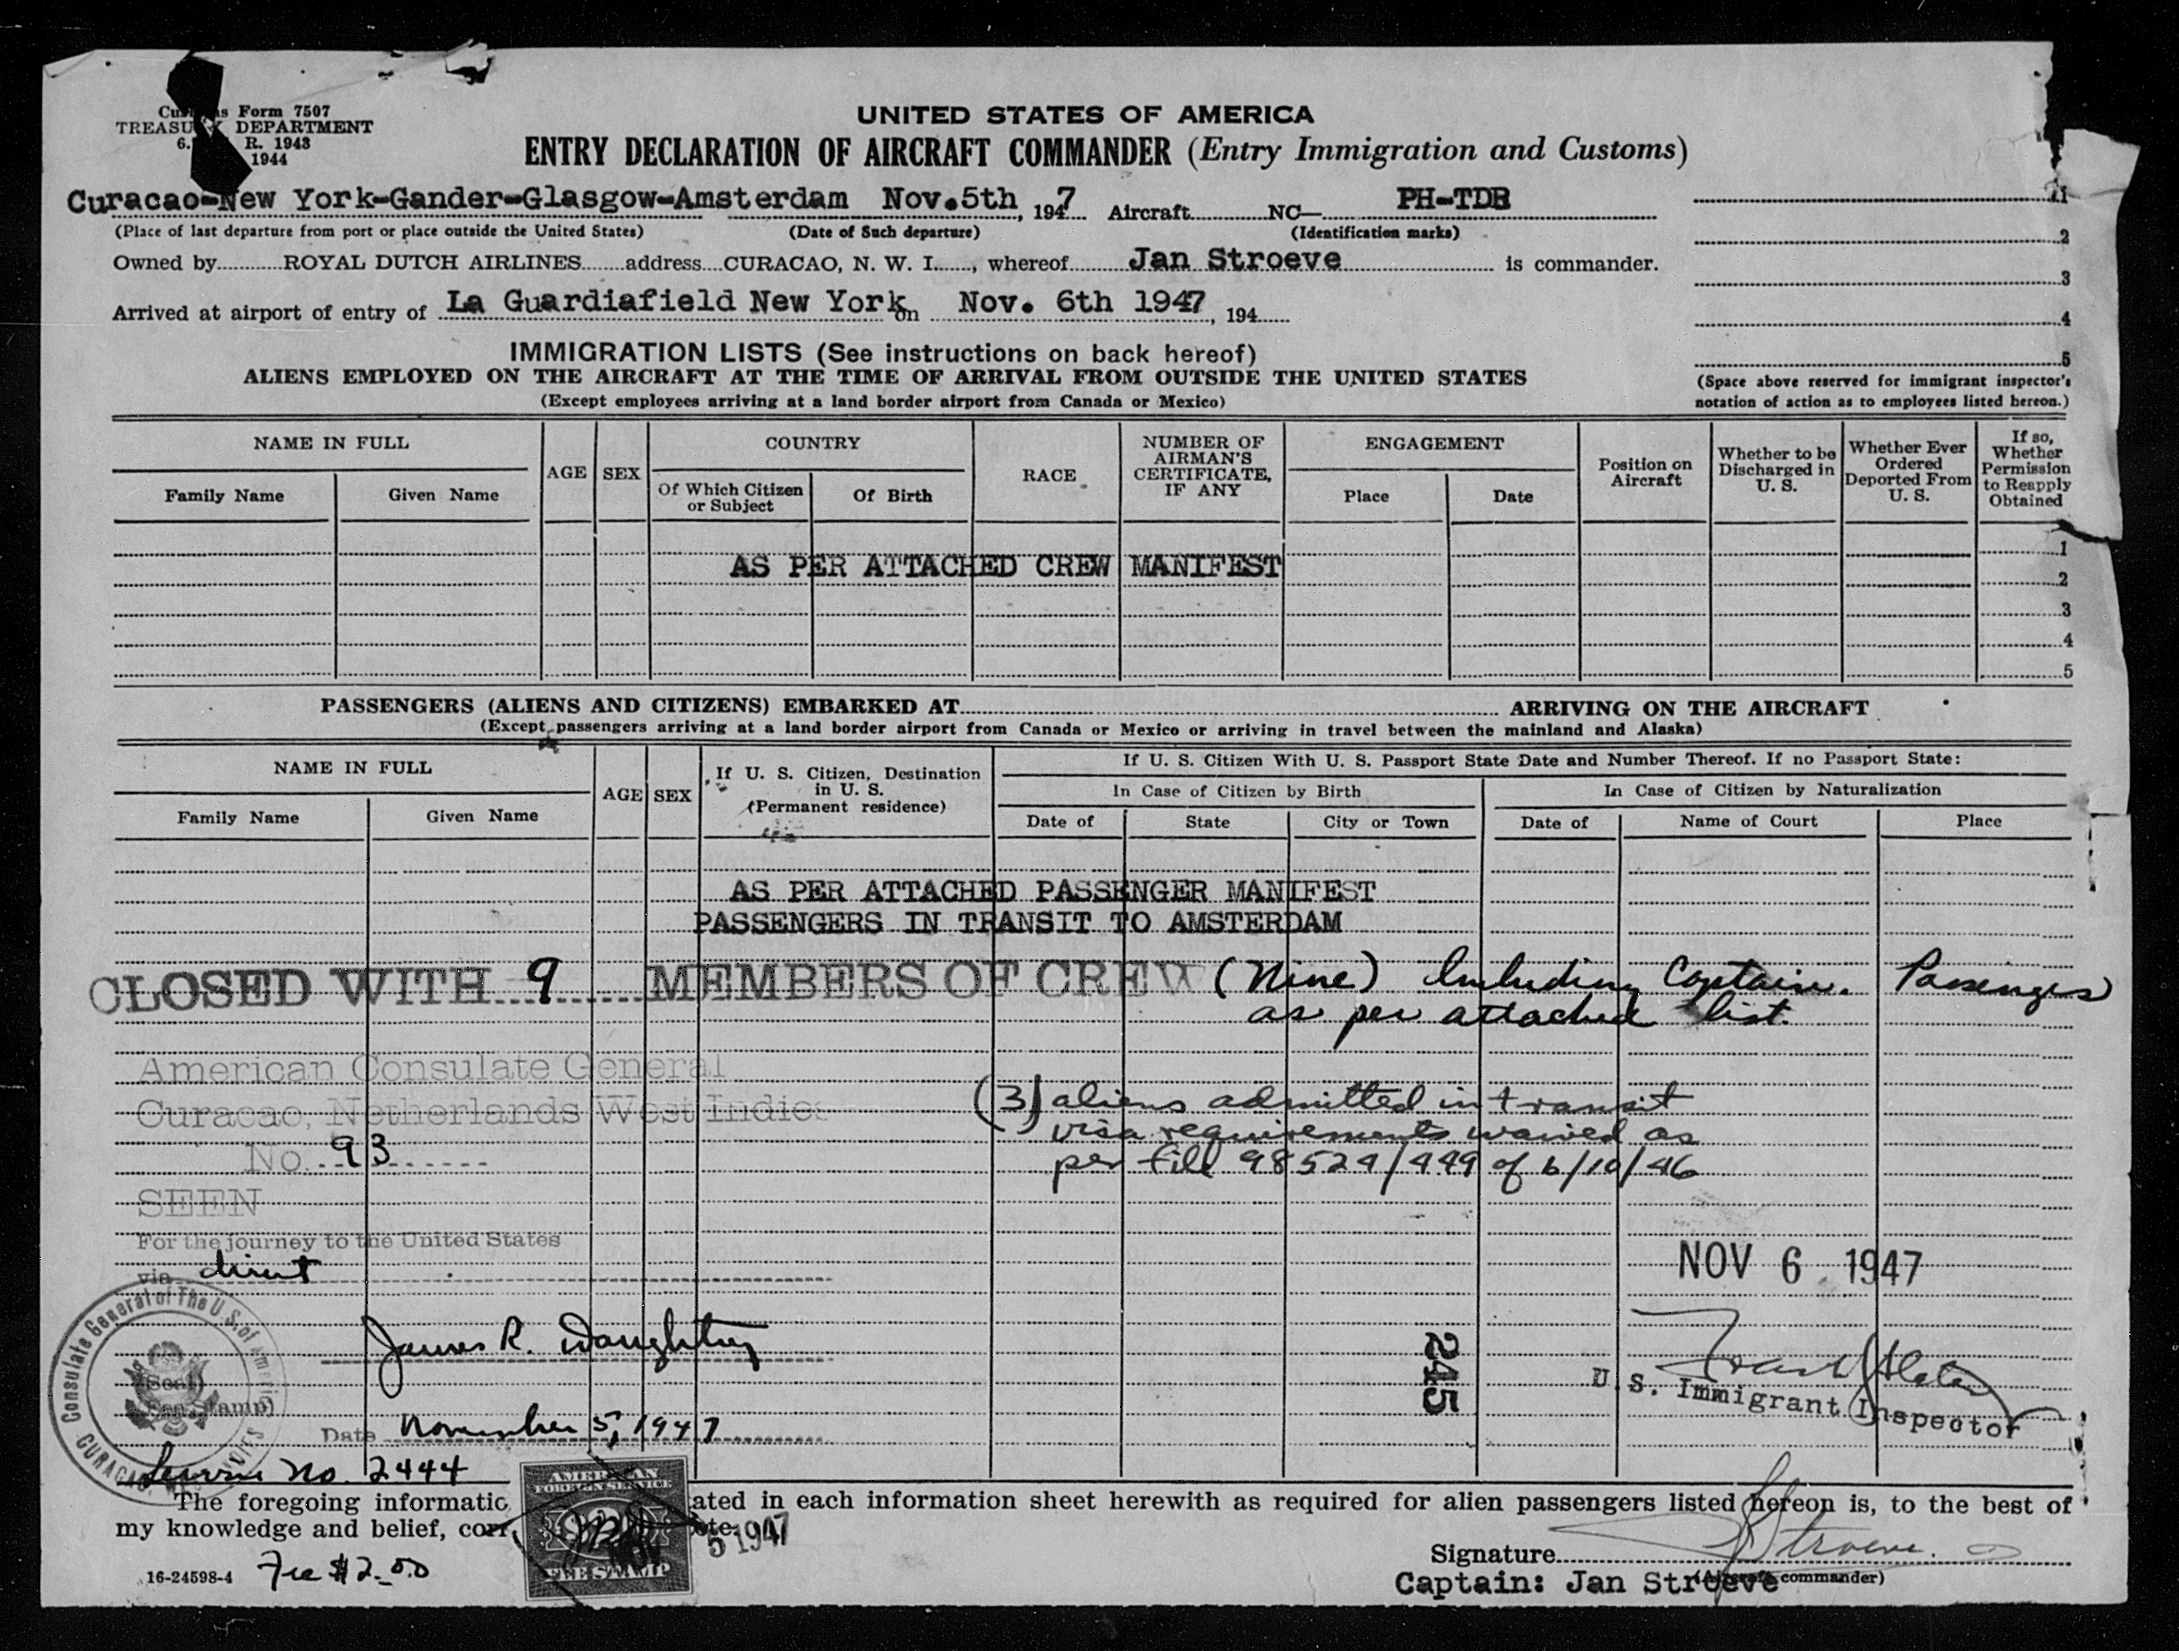 Customs Form 7507
TREASURY DEPARTMENT
6. R. 1943
1944
UNITED STATES OF AMERICA
ENTRY DECLARATION OF AIRCRAFT COMMANDER (Entry Immigration and Customs)
Curacao-New York-Gander-Glasgow-Amsterdam Nov.5th, 1947 Aircraft NC— PH-TDB
(Place of last departure from port or place outside the United States) (Date of Such departure) (Identification marks)
Owned by ROYAL DUTCH AIRLINES address CURACAO, N. W. I., whereof Jan Stroeve is commander.
Arrived at airport of entry of La Guardiafield New York on Nov. 6th 1947, 194
1
2
3
4
5
(Space above reserved for immigrant inspector's
notation of action as to employees listed hereon.)
IMMIGRATION LISTS (See instructions on back hereof)
ALIENS EMPLOYED ON THE AIRCRAFT AT THE TIME OF ARRIVAL FROM OUTSIDE THE UNITED STATES
(Except employees arriving at a land border airport from Canada or Mexico)
NAME IN FULL
Family Name Given Name
AGE SEX
COUNTRY
Of Which Citizen or Subject Of Birth
RACE
NUMBER OF AIRMAN'S CERTIFICATE, IF ANY
ENGAGEMENT
Place Date
Position on Aircraft
Whether to be Discharged in U. S.
Whether Ever Ordered Deported From U. S.
If so, Whether Permission to Reapply Obtained
1
AS PER ATTACHED CREW MANIFEST
2
3
4
5
PASSENGERS (ALIENS AND CITIZENS) EMBARKED AT ARRIVING ON THE AIRCRAFT
(Except passengers arriving at a land border airport from Canada or Mexico or arriving in travel between the mainland and Alaska)
NAME IN FULL
Family Name Given Name
AGE SEX
If U. S. Citizen, Destination in U. S. (Permanent residence)
If U. S. Citizen With U. S. Passport State Date and Number Thereof. If no Passport State:
In Case of Citizen by Birth In Case of Citizen by Naturalization
Date of State City or Town Date of Name of Court Place
AS PER ATTACHED PASSENGER MANIFEST
PASSENGERS IN TRANSIT TO AMSTERDAM
CLOSED WITH 9 MEMBERS OF CREW (Nine) Including Captain. Passengers
as per attached list.
American Consulate General
Curacao, Netherlands West Indies
No. 93
SEEN
For the journey to the United States
via direct
(3) aliens admitted in transit
visa requirements waived as
per fill 98524/449 of 6/10/46
NOV 6 1947
James R. Doughtrey
Date November 5, 1947
Consulate General of The U.S. of America
CURACAO
(Seal)
Service No. 2444
245
U. S. Immigrant Inspector
AMERICAN
FOREIGN SERVICE
FEE STAMP
5 1947
The foregoing informatio ated in each information sheet herewith as required for alien passengers listed hereon is, to the best of
my knowledge and belief, corr ete.
16-24598-4 Fee $2.00
Signature J Stroeve.
(Aircraft commander)
Captain: Jan Stroeve